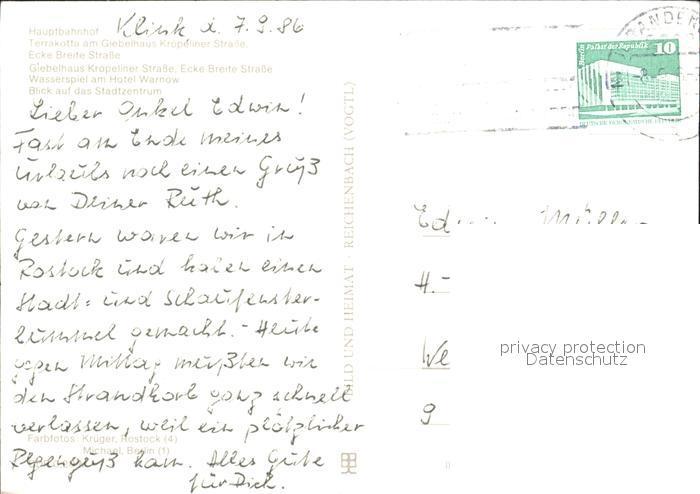 Klink d. 7.9.86
Hauptbahnhof
Terrakotta am Giebelhaus Kröpeliner Straße,
Ecke Breite Straße
Giebelhaus Kröpeliner Straße, Ecke Breite Straße
Wasserspiel am Hotel Warnow
Blick auf das Stadtzentrum
Lieber Onkel Edwin!
Fast am Ende meines
Urlaubs noch einen Gruß
von Deiner Ruth.
Gestern waren wir in
Rostock und haben einen
Stadt- und Schaufenster-
bummel gemacht. - Heute
gegen Mittag mußten wir
den Strandkorb ganz schnell
verlassen, weil ein plötzlicher
Farbfotos: Krüger, Rostock (4)
Michael, Berlin (1)
Regenguß kam. Alles Gute
für Dich.
BILD UND HEIMAT · REICHENBACH (VOGTL)
BRANDEN
Berlin Palast der Republik 10
DEUTSCHE DEMOKRATISCHE REPUBLIK
Ed
H.-
We
9
privacy protection
Datenschutz